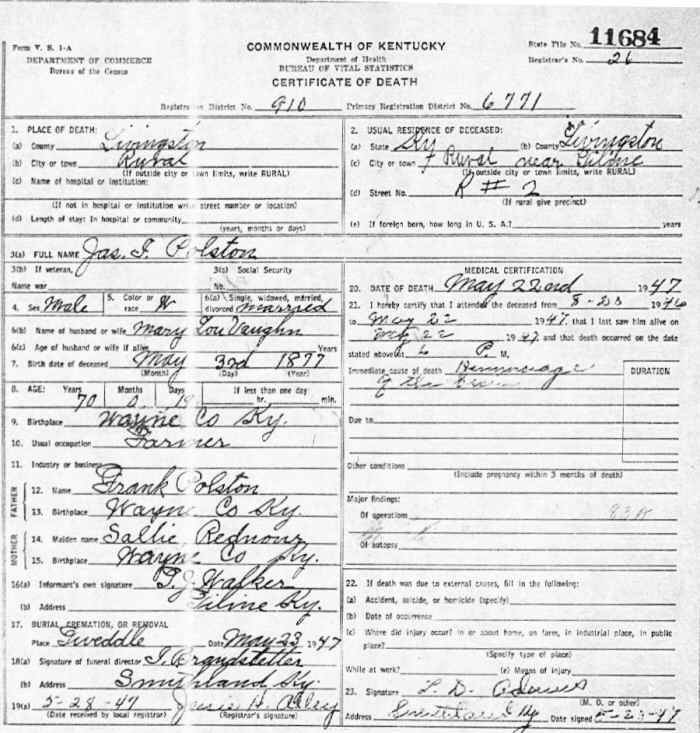 Form V. S. 1-A
DEPARTMENT OF COMMERCE
Bureau of the Census
COMMONWEALTH OF KENTUCKY
Department of Health
BUREAU OF VITAL STATISTICS
CERTIFICATE OF DEATH
State File No. 11684
Registrar's No. 26
Registration District No. 910 Primary Registration District No. 6771
1. PLACE OF DEATH:
(a) County Livingston
(b) City or town Rural
(If outside city or town limits, write RURAL)
(c) Name of hospital or institution:
(If not in hospital or institution write street number or location)
(d) Length of stay: In hospital or community
(years, months or days)
2. USUAL RESIDENCE OF DECEASED:
(a) State Ky (b) County Livingston
(c) City or town Rural near
(If outside city or town limits, write RURAL)
(d) Street No. R # 2
(If rural give precinct)
(e) If foreign born, how long in U. S. A.? years
3(a) FULL NAME Jas. F. Polston
3(b) If veteran, 3(c) Social Security
Name war No.
4. Sex Male 5. Color or race W 6(a) Single, widowed, married, divorced married
6(b) Name of husband or wife Mary Lou Vaughn
6(c) Age of husband or wife if alive Years
7. Birth date of deceased May 3rd 1877
(Month) (Day) (Year)
8. AGE: Years Months Days If less than one day
70 0 19 hr. min.
9. Birthplace Wayne Co Ky.
10. Usual occupation Farmer
11. Industry or business
FATHER
12. Name Frank Polston
13. Birthplace Wayne Co Ky.
MOTHER
14. Maiden name Sallie Rednour
15. Birthplace Wayne Co Ky.
16(a) Informant's own signature T. J. Walker
(b) Address Tiline Ky.
17. BURIAL, CREMATION, OR REMOVAL
Place Gweddle Date May 23 1947
18(a) Signature of funeral director J. Brandstetter
(b) Address Smithland Ky.
19(a) 5-28-47
(Date received by local registrar) (Registrar's signature)
MEDICAL CERTIFICATION
20. DATE OF DEATH May 22nd 1947
21. I hereby certify that I attended the deceased from 8-23 1946
to May 22 1947, that I last saw him alive on
May 22 1947, and that death occurred on the date
stated above at 6 P. M.
Immediate cause of death Hemorrhage
of the brain
DURATION
Due to
Other conditions
(Include pregnancy within 3 months of death)
Major findings:
Of operations 83A
Of autopsy
22. If death was due to external causes, fill in the following:
(a) Accident, suicide, or homicide (specify)
(b) Date of occurrence
(c) Where did injury occur? in or about home, on farm, in industrial place, in public
place?
(Specify type of place)
While at work? (e) Means of injury
23. Signature L. D.
(M. D. or other)
Address Smithland Ky Date signed 5-23-47